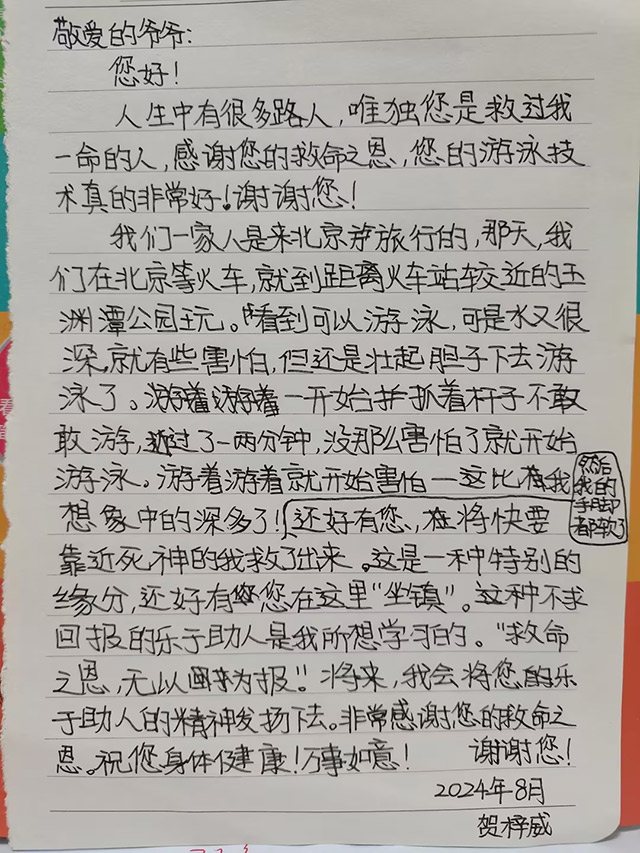 敬爱的爷爷:
您好!
人生中有很多路人,唯独您是救过我
一命的人,感谢您的救命之恩,您的游泳技
术真的非常好!谢谢您!
我们一家人是来北京旅行的,那天,我
们在北京等火车,就到距离火车站较近的玉
渊潭公园玩。看到可以游泳,可是水又很
深,就有些害怕,但还是壮起胆子下去游
泳了。游着游着一开始抓着杆子不敢
敢游,过了一两分钟,没那么害怕了就开始
游泳。游着游着就开始害怕——这比我
想象中的深多了!还好有您,将快要
然后
我的
手脚
都软了
靠近死神的我救了出来。这是一种特别的
缘分,还好有您在这里"坐镇"。这种不求
回报的乐于助人是我所想学习的。"救命
之恩,无以为报"。将来,我会将您的乐
于助人的精神发扬下去。非常感谢您的救命之
恩。祝您身体健康!万事如意! 谢谢您!
2024年8月
贺梓威